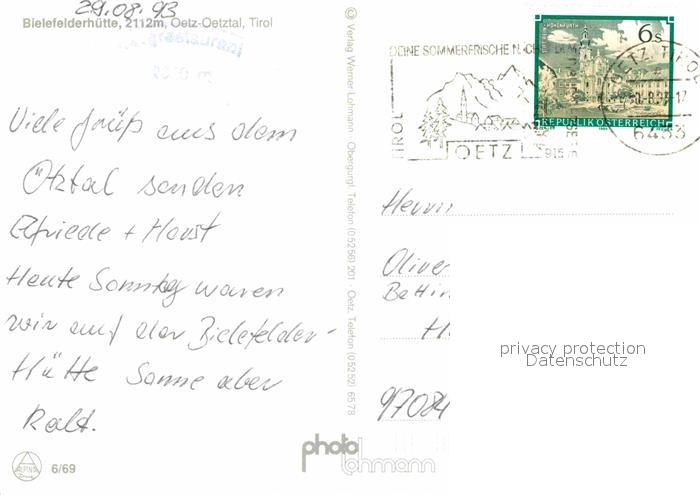 29.08.93
Bielefelderhütte, 2112m, Oetz-Oetztal, Tirol
Viele Grüß aus dem
Ötztal senden
Elfriede + Horst
Heute Sonntag waren
wir auf der Bielefelder-
Hütte Sonne aber
kalt.
6/69
© Verlag Werner Lohmann · Obergurgl, Telefon (05256) 201 · Oetz, Telefon (05252) 6578
photo
lohmann
DEINE SOMMERFRISCHE
TIROL
OETZ
6s
REPUBLIK ÖSTERREICH
6433
Herrn
Oliver
Bettin
H
97084
privacy protection
Datenschutz